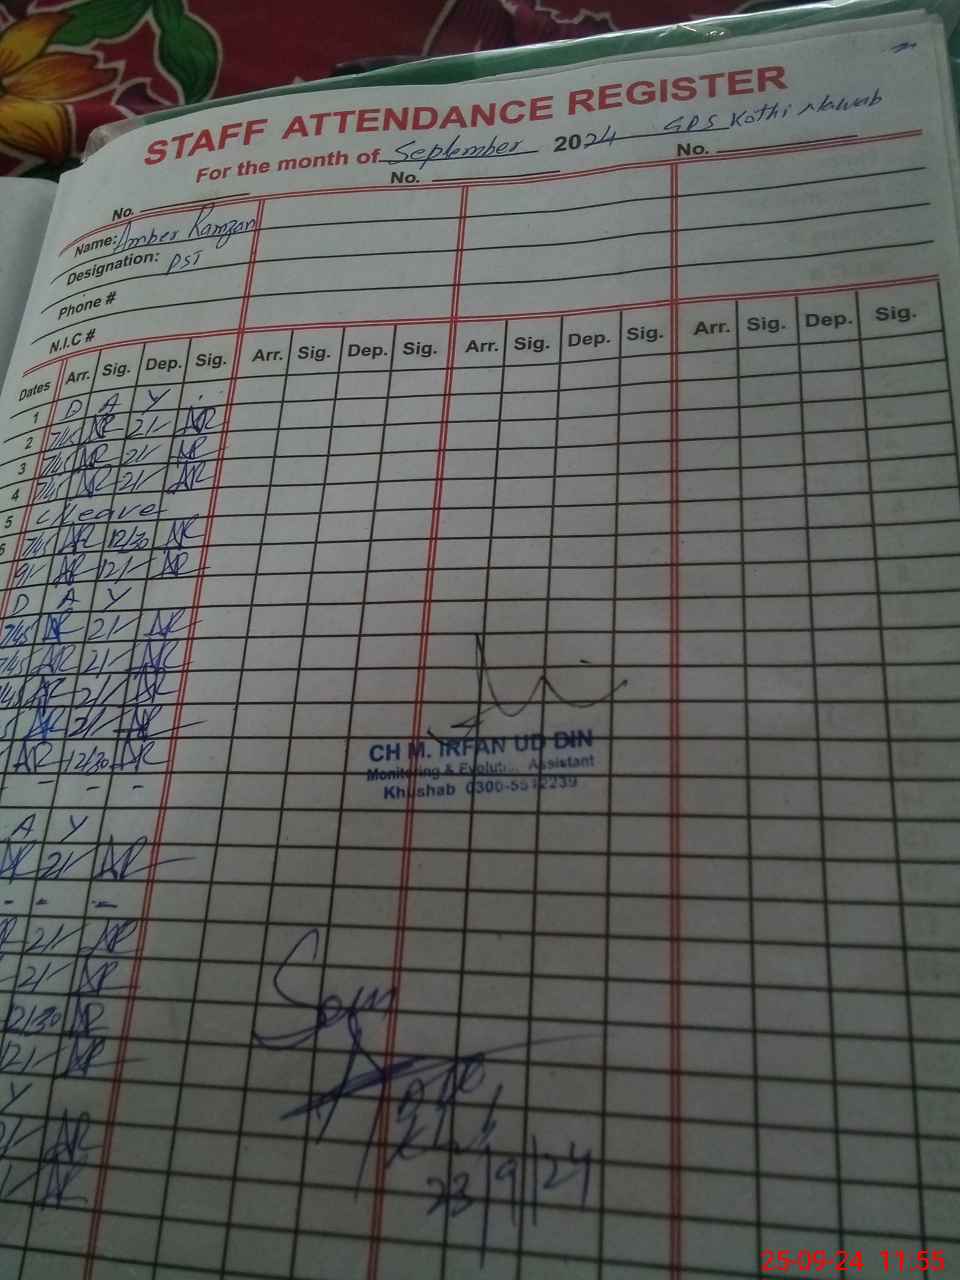 STAFF ATTENDANCE REGISTER
For the month of September 2024 GPS Kothi Nawab
No. No. No.
Name: Amber Ramzan
Designation: PST
Phone #
N.I.C #
Dates Arr. Sig. Dep. Sig. Arr. Sig. Dep. Sig. Arr. Sig. Dep. Sig. Arr. Sig. Dep. Sig.
1 D A Y
2 7/45 AR 2/- AR
3 7/45 AR 2/- AR
4 7/45 AR 2/- AR
5 c/leave
6 7/45 AR 12/30 AR
9/- AR 12/- AR
D A Y
7/45 AR 2/- AR
7/45 AR 2/- AR
7/45 AR 2/- AR
AR 2/- AR
AR 12/30 AR
- - -
A Y
AR 2/- AR
- - -
2/- AR
2/- AR
12/30 AR
12/- AR
Y
AR
AR
CH M. IRFAN UD DIN
Monitoring & Evoluti... Assistant
Khushab 0300-5512239
23/9/24
25-09-24 11:55